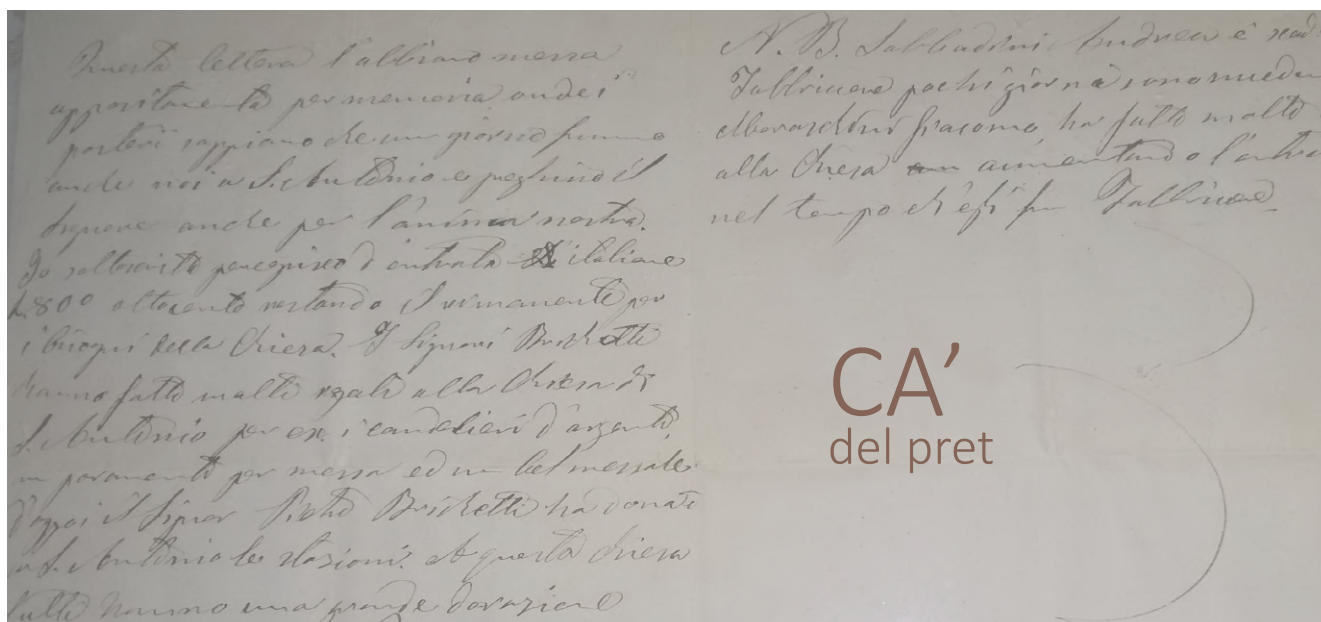 Questa lettera l'abbiamo messa
appositamente per memoria onde i
posteri sappiano che un giorno fummo
anche noi a S. Antonio e preghino il
Signore anche per l'anima nostra.
Io sottoscritto percepisco d'entrata italiane
L. 800 ottocento restando il rimanente per
i bisogni della Chiesa. I Signori Brichetti
hanno fatto molti regali alla Chiesa di
S. Antonio per es. i candelieri d'argento,
un paramento per messa ed un bel messale.
Doppoi il Signor Pietro Brichetti ha donato
a S. Antonio le stazioni. A questa Chiesa
tutti hanno una grande devozione
N.B. Sabbadini Andrea è
Fabbriciere pochi giorni sono
Giacomo ha fatto molto
alla Chiesa aumentando l'entrata
nel tempo ch'egli fu Fabbriciere
CA'
del pret